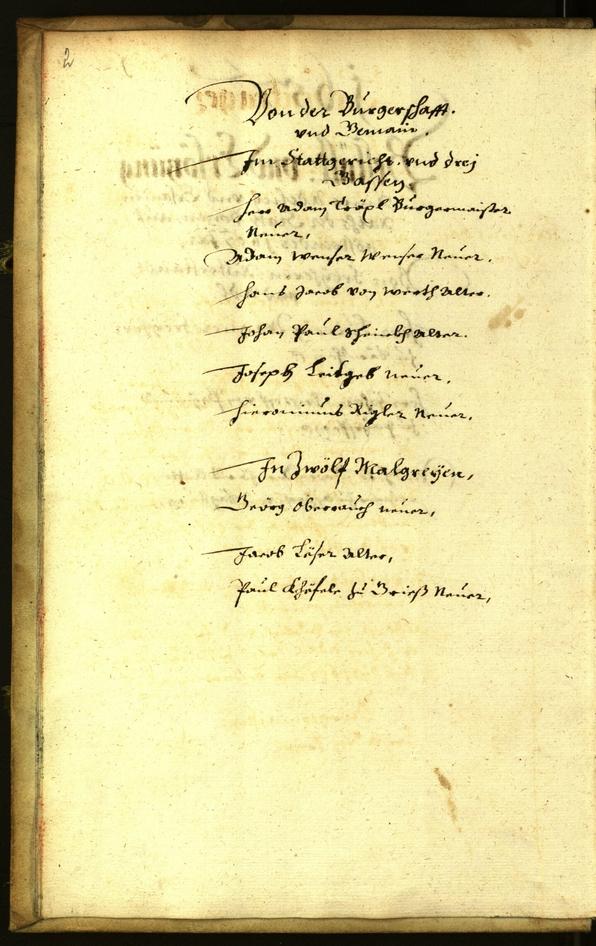 2
Von der Bürgerschafft.
vnd Gemain.
Im Stattgericht. vnd drej
Gassen.
Herr Adam Träpl Burgermaister
Neuer,
Adam Wenser Neuer.
Hans Jacob von Werth Alter.
Johan Paul Alter.
Joseph Leitgeb neuer,
Hieronimus Rigler Neuer,
In Zwölf Malgreÿen,
Georg Oberrauch neuer,
Jacob Alter,
Paul Khäfele zu Grieß Neuer,